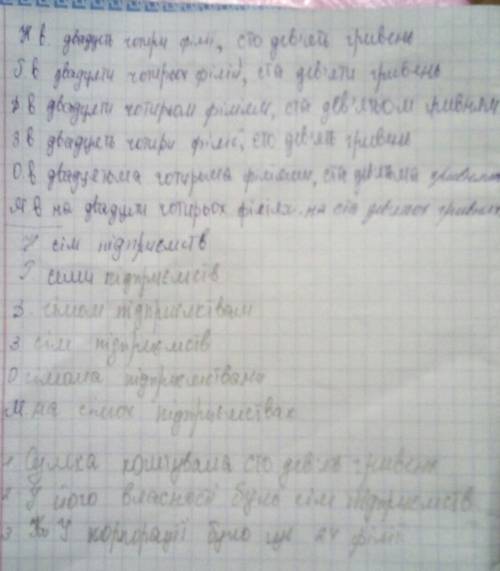 Н в. двадцять чотири філії, сто дев'ять гривень
Г. в двадцяти чотирьох філій, ста дев'яти гривень
Д в двадцяти чотирьом філіям, ста дев'ятьом гривням
З. в двадцять чотири філії, сто дев'ять гривень
О. в двадцятьома чотирма філіями, ста дев'ятьма
М в на двадцяти чотирьох філіях на ста дев'ятьох гривнях
сім підприємств
Г семи підприємств
сімом підприємствам
З сім підприємств
О сімома підприємствами
М на сімох підприємствах
Сумка коштувала сто дев'ять гривень
2 У його власності було сім підприємств
3 У корпорації було ще 24 філії